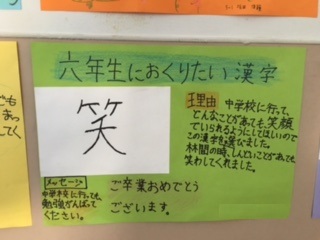 六年生におくりたい漢字
笑
理由 中学校に行って、
どんなことがあっても、笑顔
でいられるようにしてほしいので
この漢字を選びました。
林間の時、しんどいことがあっても、
笑わしてくれました。
メッセージ
中学校に行っても、
勉強がんばって
ください。
ご卒業おめでとう
ございます。